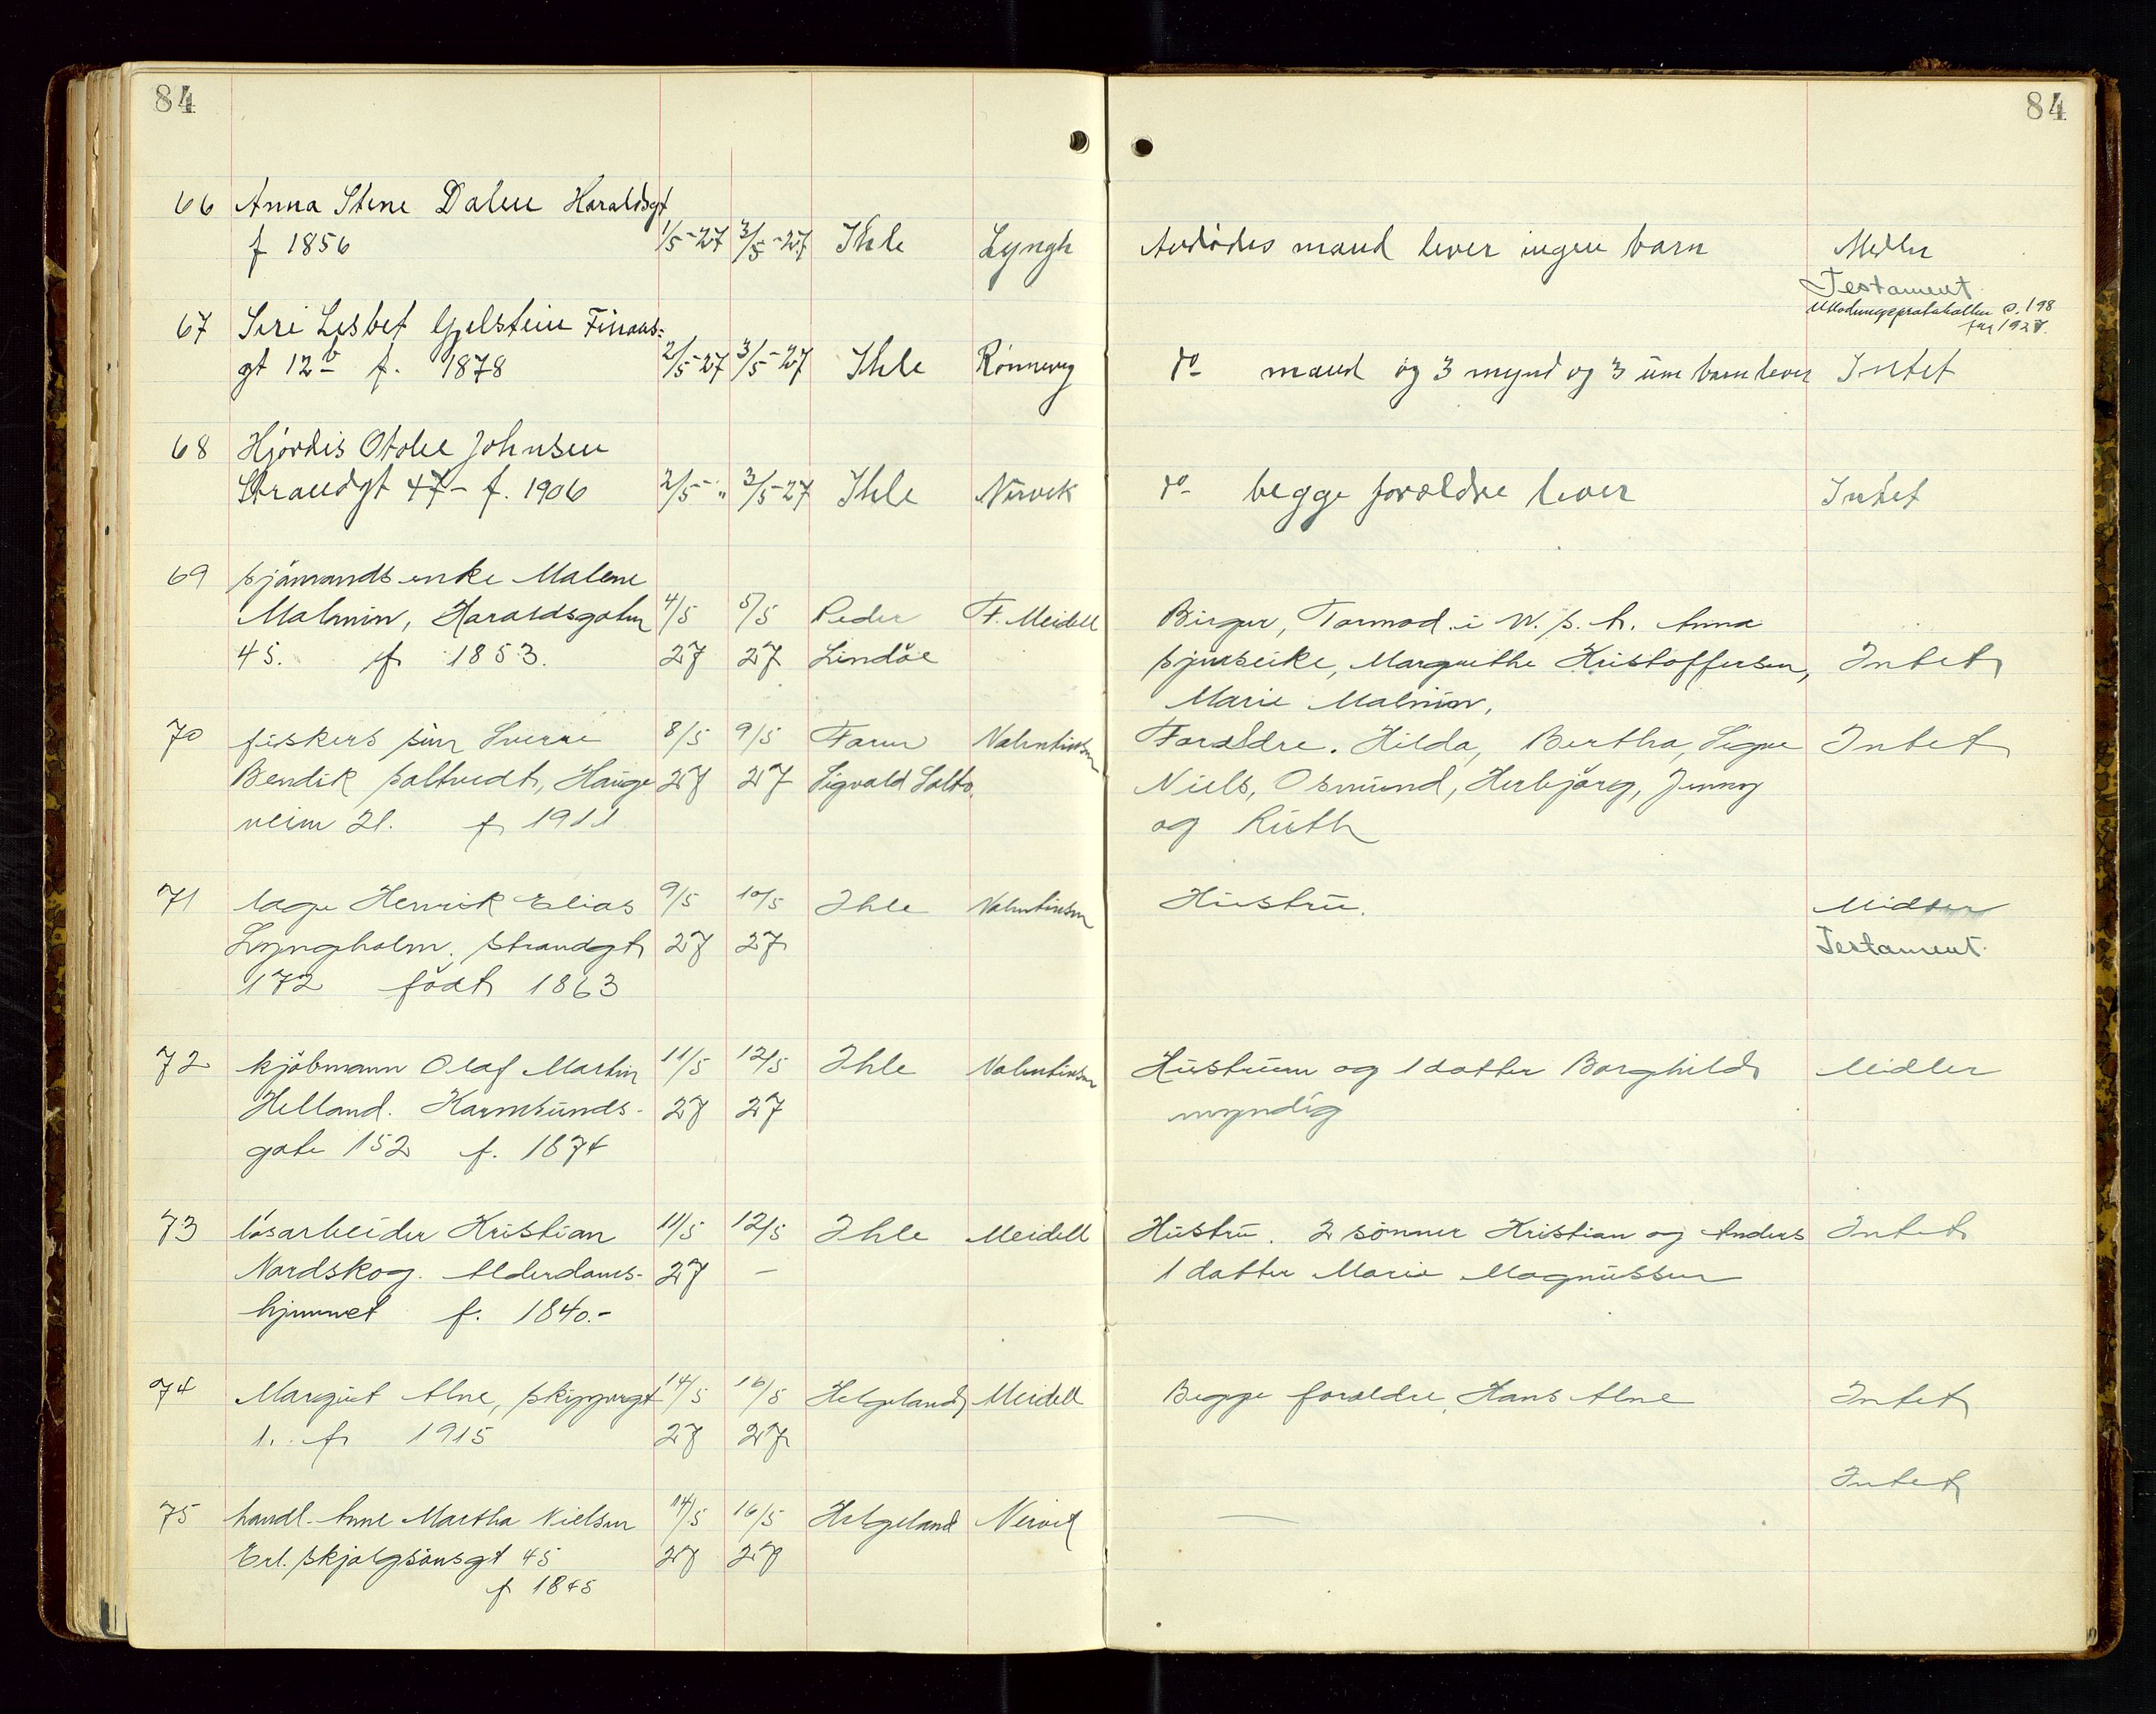 84
84
66 Anna Stene Dalen Haraldsgt
f 1856 1/5-27 3/5-27 Ihle Lyngh Avdødes mand lever ingen barn Midler
Testament
Utlodningsprotokollen s. 198
for 1927.
67 Siri Lisbet Gjelstein Finans-
gt 12b f. 1878 2/5-27 3/5-27 Ihle Rønnevig do mand og 3 mynd og 3 um barn lever Intet
68 Hjørdis Otolie Johnsen
Strandgt 47- f. 1906 2/5-" 3/5-27 Ihle Nervik do begge forældre lever Intet
69 sjømands enke Malene
Malmin, Haraldsgaten 4/5 5/5 Peder F. Meidell Birger, Tormod i W. s. h. Anna
45. f 1853. 27 27 Lindöe Margrethe Kristoffersen, Intet
Marie Malmin,
70 fiskers sön Sverre 8/5 9/5 Faren Valentinsen Foraldre. Hilda, Bertha, Signe Intet
Bendik Saltvedt, Hauge 27 27 Sigvald Saltv. Niels, Osmund, Herbjörg, Jenny
veien 21. f 1911 og Ruth
71 læge Henrik Elias 9/5 10/5 Ihle Valentinsen Hustru. Midler
Lyngholm, Strandgt 27 27 Testament
172 född 1863
72 kjöbmann Olaf Martin 11/5 12/5 Ihle Valentinsen Hustruen og 1 datter Borghild Midler
Helland. Karmsunds- 27 27 myndig
gate 152 f. 1874
73 lösarbeider Kristian 11/5 12/5 Ihle Meidell Hustru. 2 sönner Kristian og Anders Intet
Nordskog. Alderdoms- 27 - 1 datter Marie Magnussen
hjemmet f. 1840.-
74 Margit Alne, Skippergt 14/5 16/5 Helgeland Meidell Begge foraldre, Hans Alne Intet
1. f 1915 27 27
Intet
75 handl. Anne Martha Nielsen 14/5 16/5 Helgeland Nervik —
Erl. Skjalgsönsgt 45 27 27
f 1845